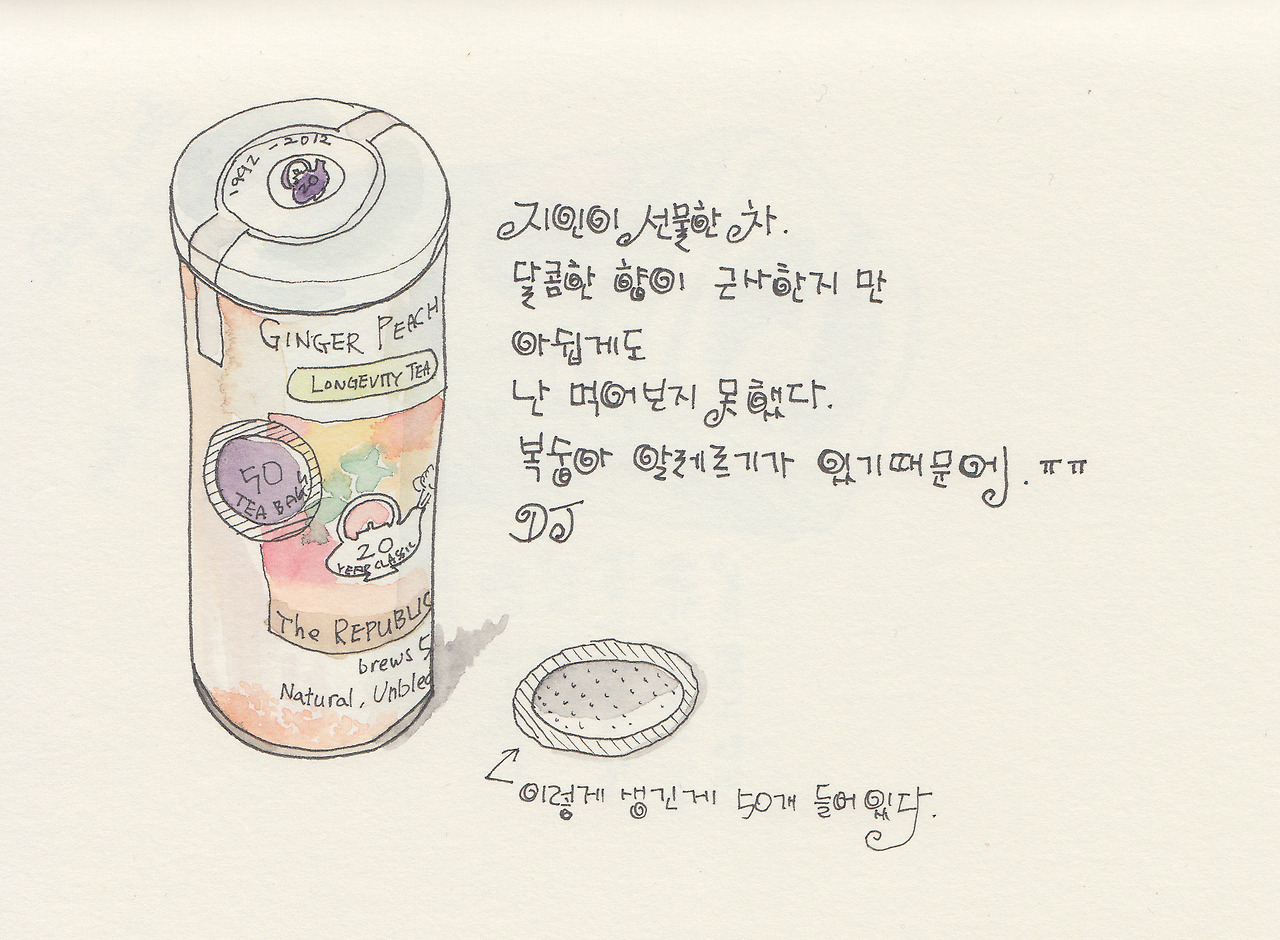 1992 - 2012
20
GINGER PEACH
LONGEVITY TEA
50
TEA BAGS
20
YEAR CLASSIC
The REPUBLIC
brews 5
Natural, Unblea
지인이 선물한 차.
달콤한 향이 근사한지 만
아쉽게도
난 먹어보지 못했다.
복숭아 알레르기가 있기때문에. ㅠㅠ
DJ
이렇게 생긴게 50개 들어있다.